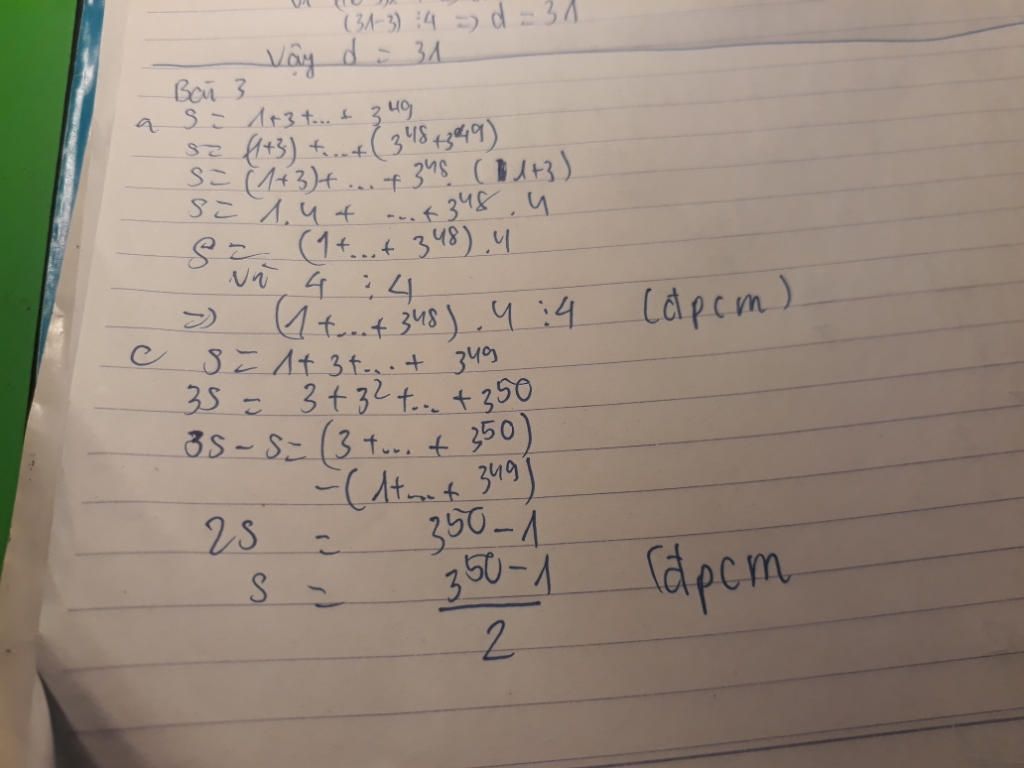 (31-3) ⋮4 => d = 31
Vậy d = 31
Bài 3
a S = 1+3+...+ 3^49
S = (1+3) +...+(3^48+3^49)
S = (1+3)+ ... + 3^48. (1+3)
S = 1.4 + ...+3^48 . 4
S = (1+...+ 3^48).4
Vì 4 ⋮4
=> (1 +...+ 3^48) .4 ⋮4 (đpcm)
c S = 1+ 3+...+ 3^49
3S = 3 + 3^2 +... + 3^50
3S - S = (3 +... + 3^50)
-(1+...+ 3^49)
2S = 3^50 - 1
S = 3^50 - 1 (đpcm
2